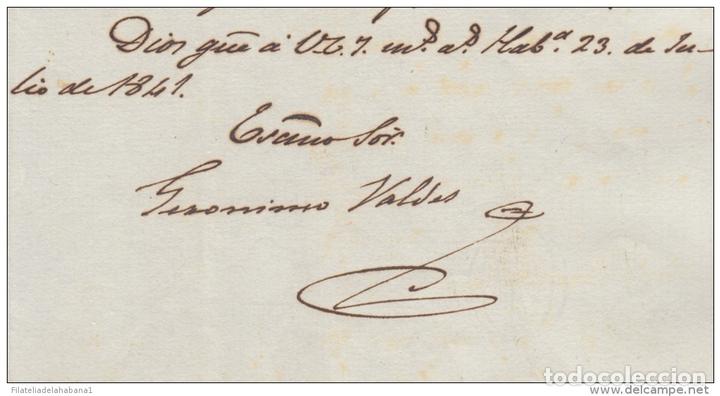 Dios gũe á V.E.Y. m.s a.s Hab.a 23. de Ju-
lio de 1841.
Escmo Sor.
Geronimo Valdes
todocoleccion
Filateliadelahabana1
todocoleccion.net